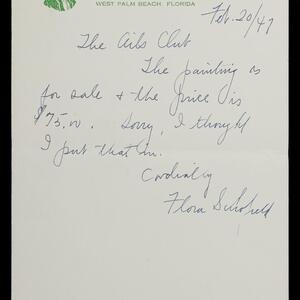 WEST PALM BEACH, FLORIDA
Feb. 20/47
The Arts Club
The painting is
for sale & the price is
$75.00. Sorry, I thought
I put that in.
Cordially
Flora Schofield